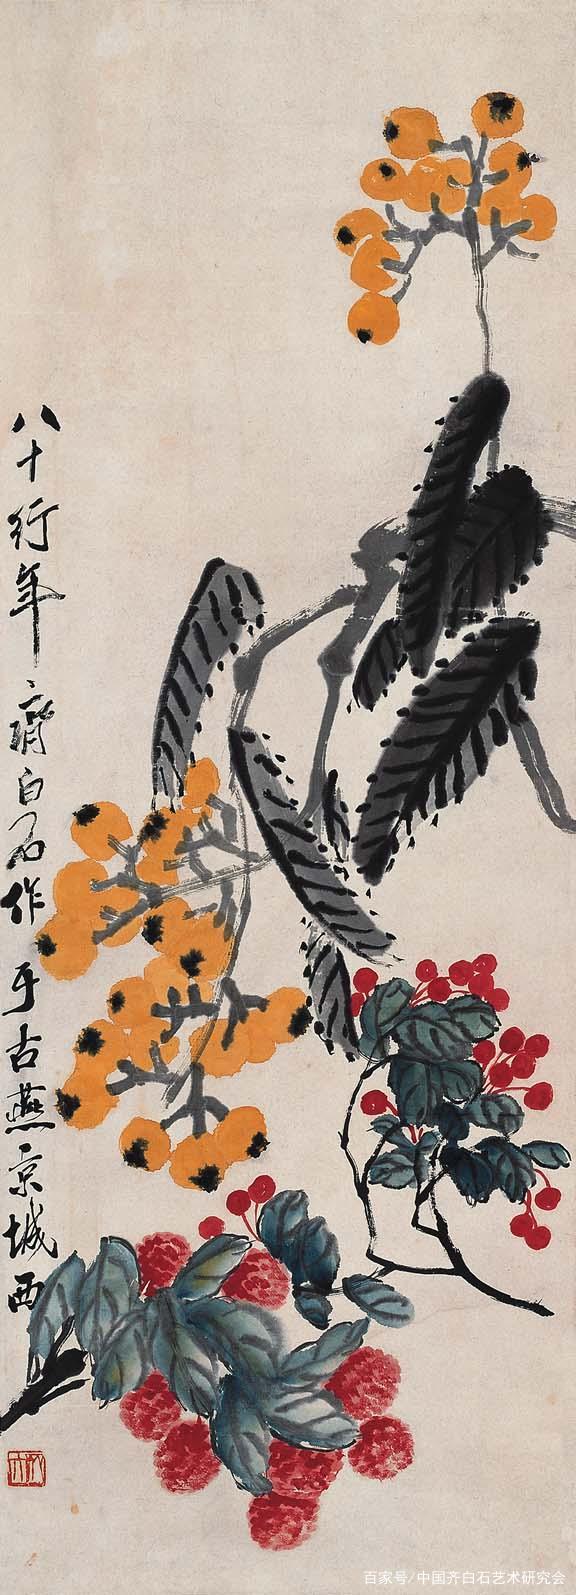 八十行年齊白石作于古燕京城西
百家号/中国齐白石艺术研究会